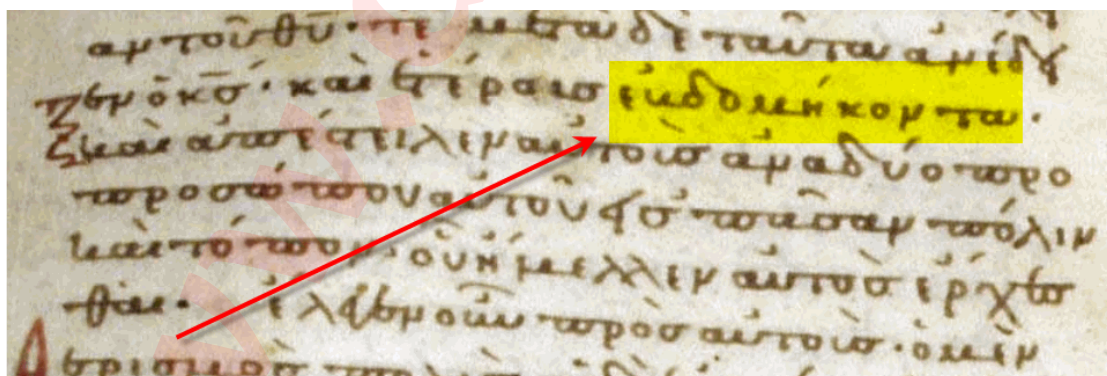 αν τοῦ θῦ· τε μετὰ δὲ ταῦτα ἀνέδει
ξεν ὁ κσ̅· καὶ ἑτέραισ ἑυδομήκοντα·
καὶ ἀπέστιλεν αὐτοὶσ ἀνα δύο προ
προσώπου αὐτοῦ εἰσ πᾶσαν πόλιν
καὶ τόπον· οὗ ἤμελλεν αὐτὸσ ἔρχεσ
θαι· ἔλεγεν οὖν πρὸσ αὐτοισ· ὁ μὲν